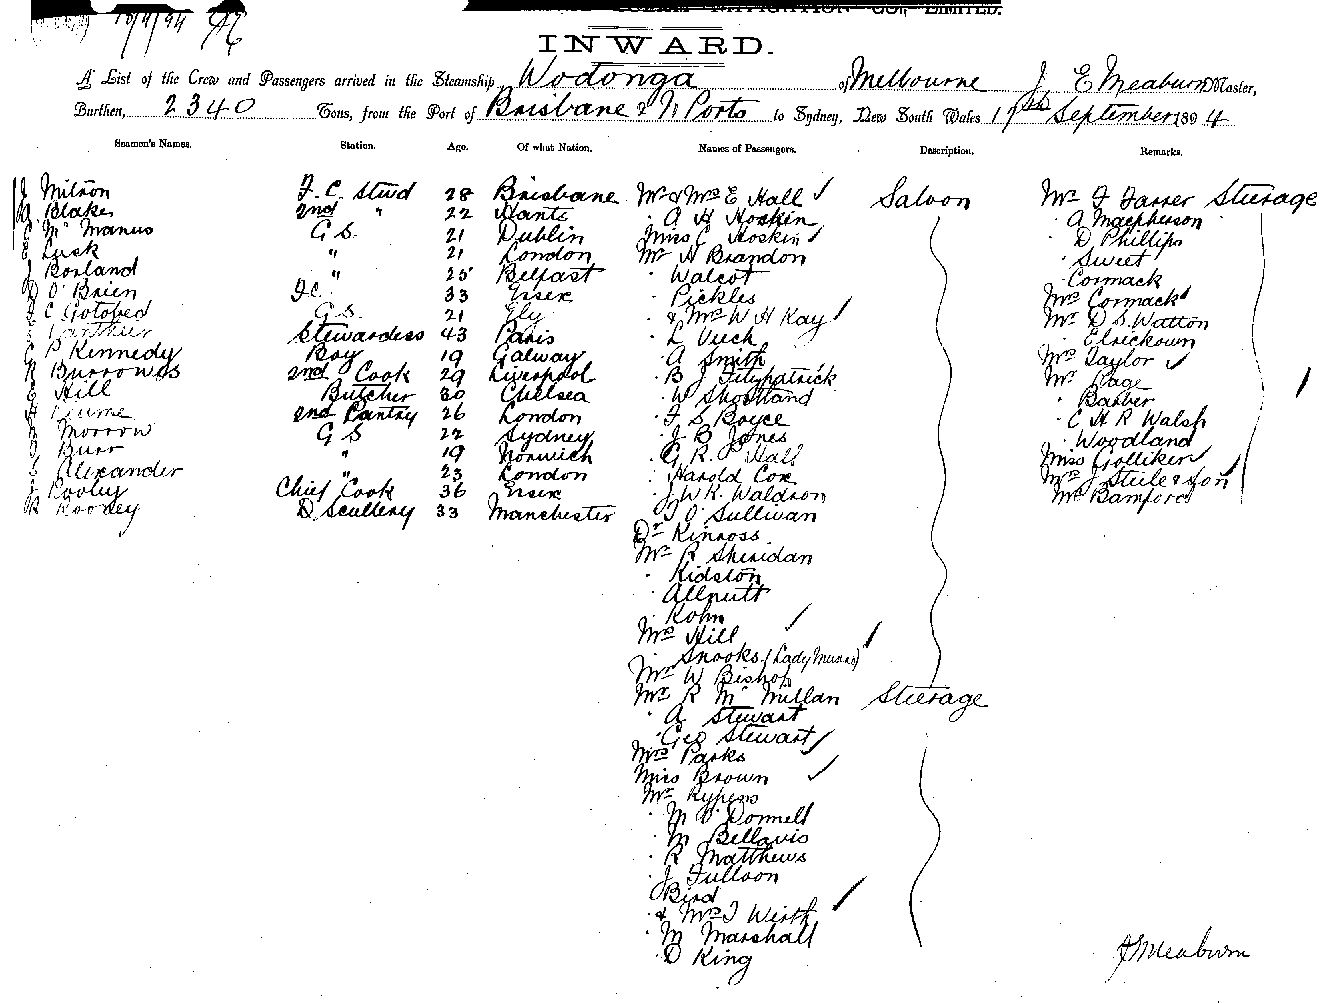 CO., LIMITED.
INWARD.
A List of the Crew and Passengers arrived in the Steamship Wodonga of Melbourne J E Meaburn Master,
Burthen, 2340 Tons, from the Port of Brisbane & N. Ports to Sydney, New South Wales 19th September 1894
Seamen's Names. Station. Age. Of what Nation. Names of Passengers. Description. Remarks.
J Milson F.C. Stwd 28 Brisbane Mr & Mrs E Hall Saloon Mr F Farrer Steerage
A. Blake 2nd " 22 Hants " A H Hoskin " A Macpherson
Mc Manus G S. 21 Dublin Miss C Hoskin " D Phillips
Lusk " 21 London Mr H Brandon " Sweet
J Borland " 25 Belfast " Walcot " Cormack
D O'Brien F.C. 33 Essex " Pickles Mrs Cormack
F C Gotobed G.S. 21 Ely " & Mrs W H Kay Mr D S. Watton
Stewardess 43 Paris " L Veech " Elrickown
P Kennedy Boy 19 Galway " A Smith Mrs Taylor
R Burrowes 2nd Cook 29 Liverpool " B J Fitzpatrick Mr Page
E Hill Butcher 30 Chelsea " W Shortland " Barber
H Hume 2nd Pantry 26 London " F S Boyce " C H R Walsh
Morrow G S 22 Sydney " J B Jones " Woodland
Burr " 19 Norwich " G R. Hall Miss Golliker
Alexander " 23 London " Harold Cox Mrs J Steele & Son
Pooley Chief Cook 36 Essex " J W R. Waldron Mr Bamford
R Roodey D Scullery 33 Manchester " T O'Sullivan
Dr Kinross
Mr R Sheridan
" Kidston
" Allnutt
" Kohn
Mrs Hill
" Snooks (Lady Munro)
Mr W Bishop
Mr R McMillan Steerage
" A Stewart
" Geo Stewart
Mrs Parks
Miss Brown
Mr Rypers
" M O'Donnell
" M Bellavis
" R Matthews
" J Fulloon
" Bird
" & Mrs J Wirth
" M Marshall
" D King
J E Meaburn